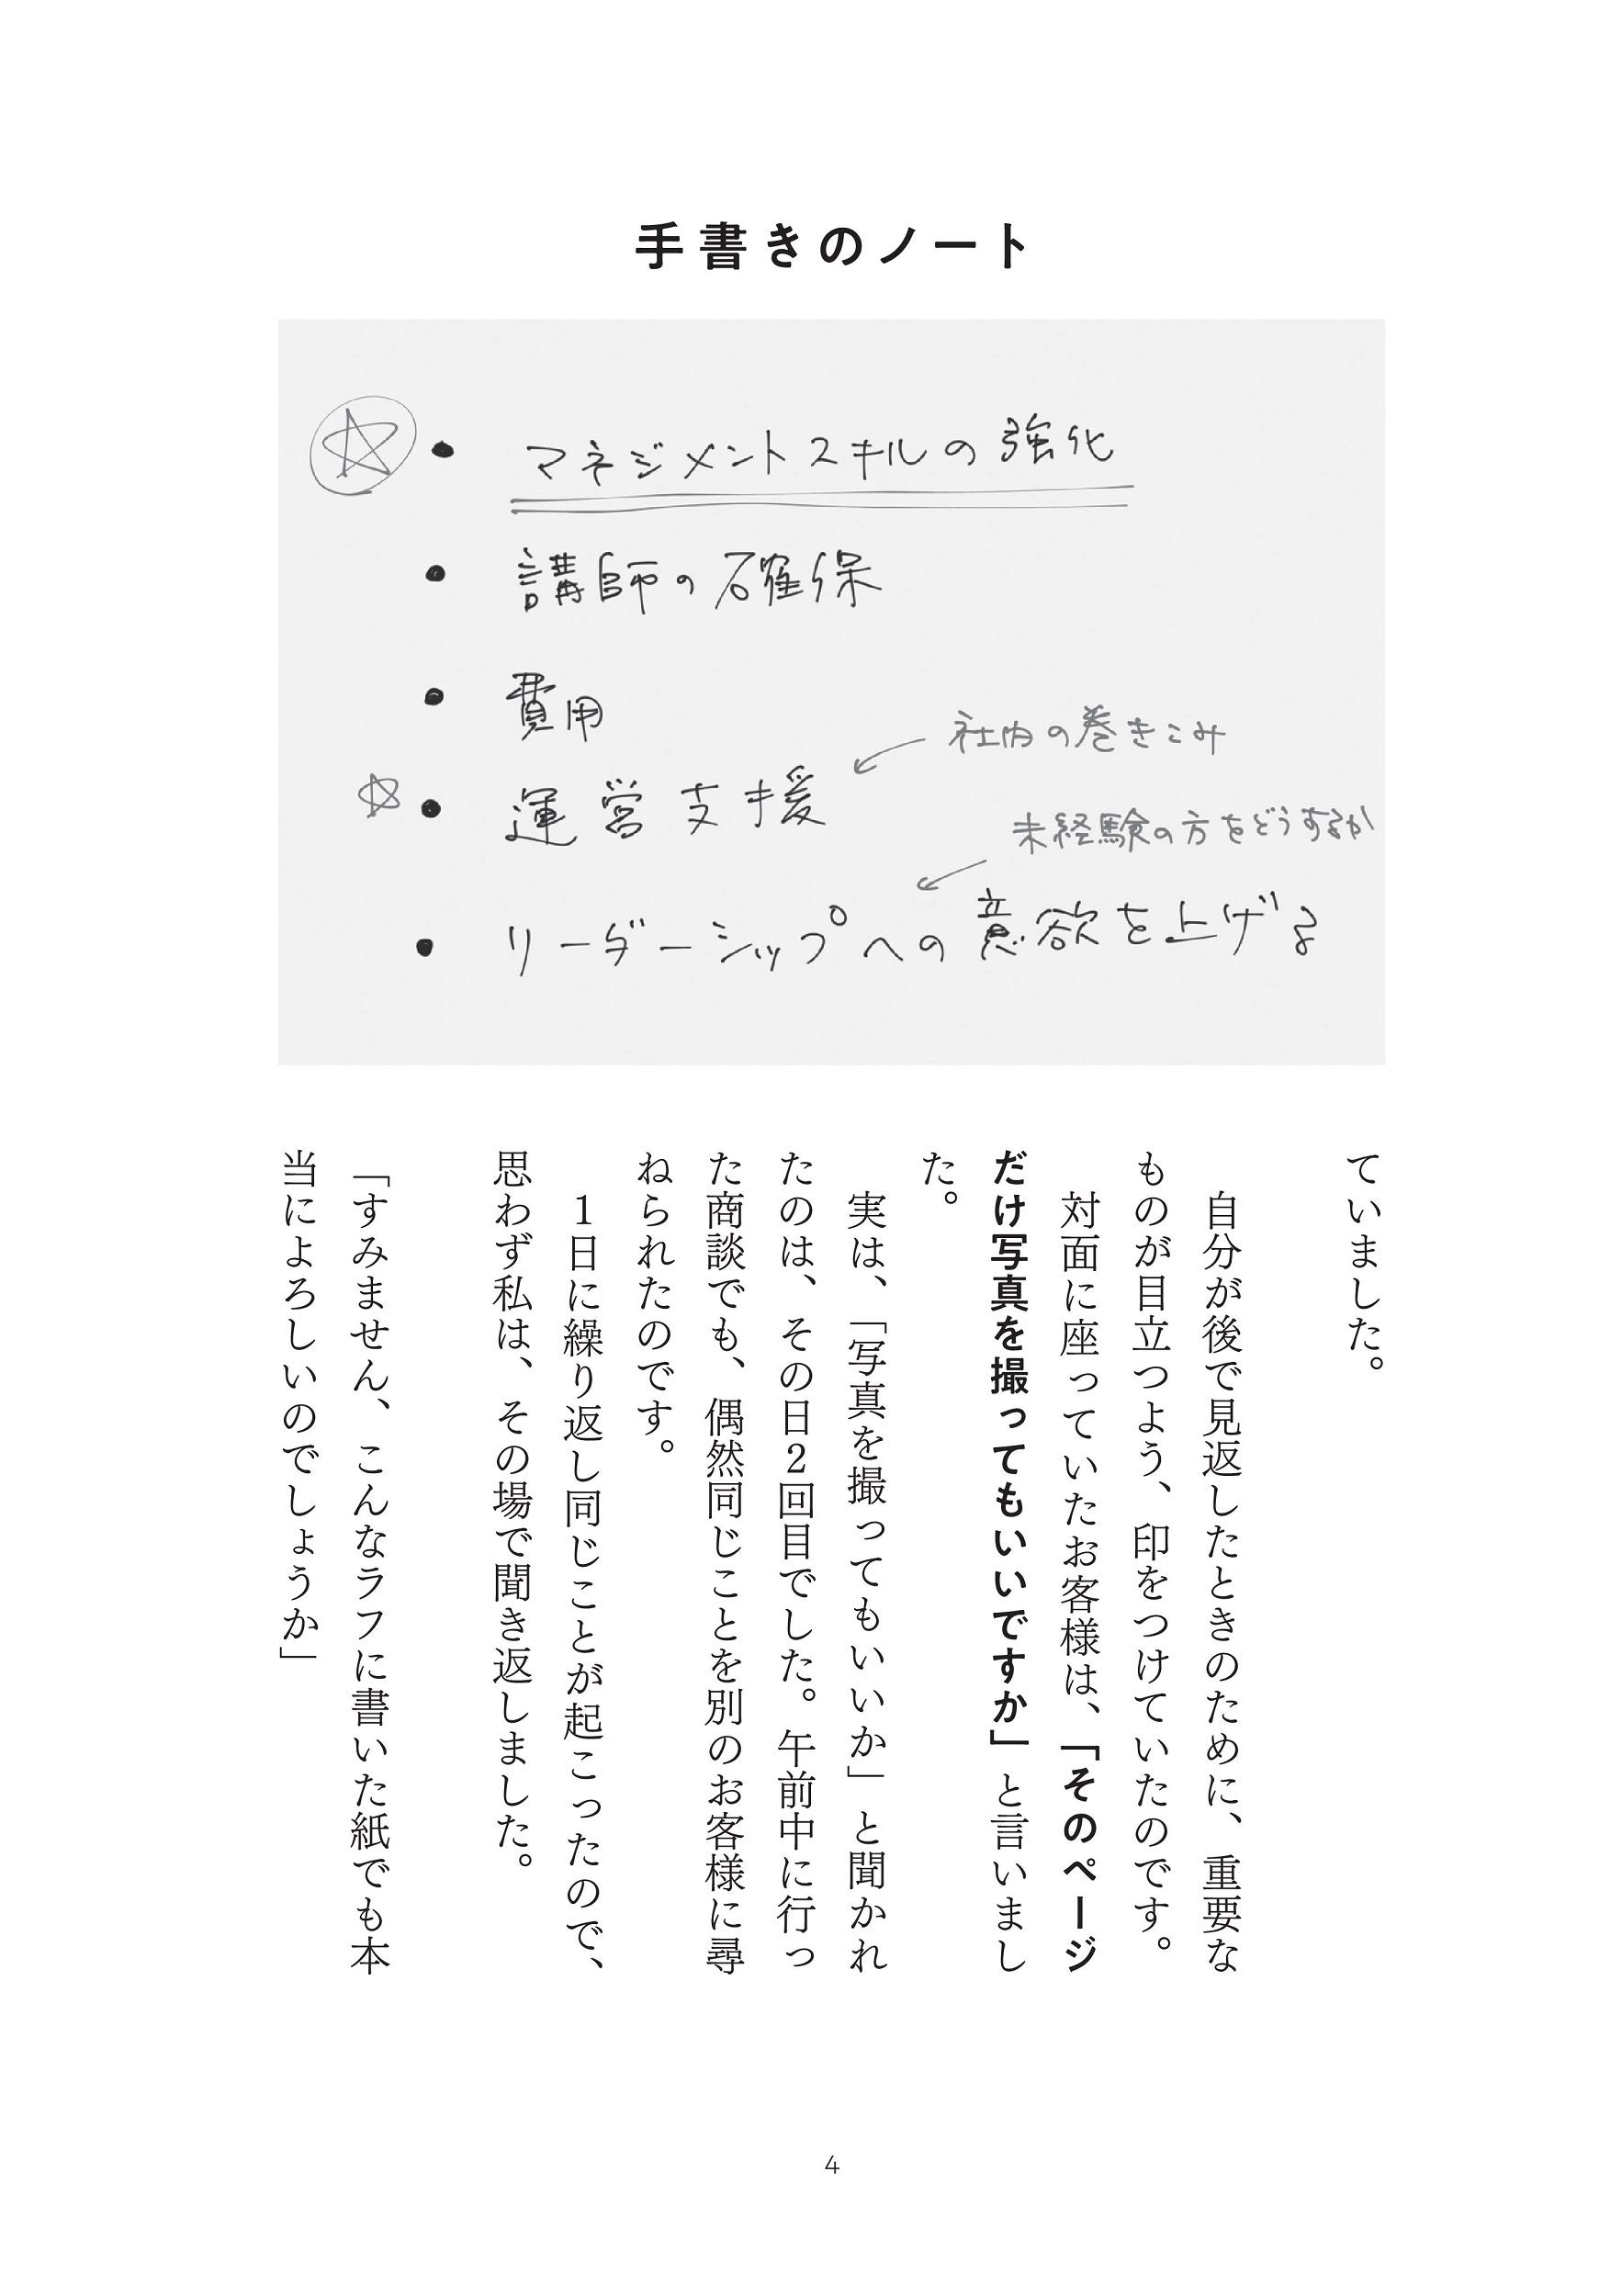 手書きのノート
マネジメントスキルの強化
講師の確保
費用
社内の巻きこみ
運営支援
未経験の方をどうするか
リーダーシップへの意欲を上げる
ていました。
自分が後で見返したときのために、重要な
ものが目立つよう、印をつけていたのです。
対面に座っていたお客様は、「そのページ
だけ写真を撮ってもいいですか」と言いまし
た。
実は、「写真を撮ってもいいか」と聞かれ
たのは、その日2回目でした。午前中に行っ
た商談でも、偶然同じことを別のお客様に尋
ねられたのです。
1日に繰り返し同じことが起こったので、
思わず私は、その場で聞き返しました。
「すみません、こんなラフに書いた紙でも本
当によろしいのでしょうか」
4